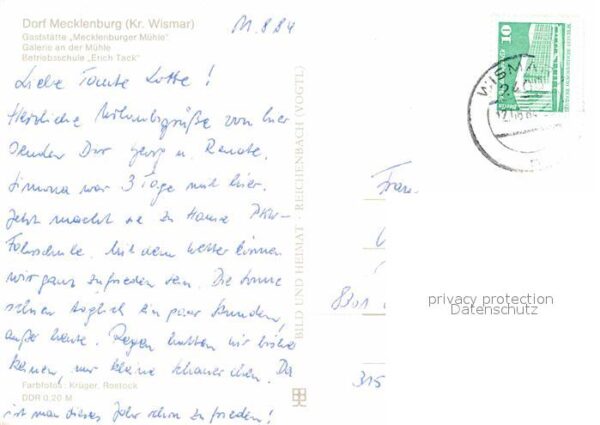 Dorf Mecklenburg (Kr. Wismar)
Gaststätte „Mecklenburger Mühle"
Galerie an der Mühle
Betriebsschule „Erich Tack"
11.8.84
Liebe Tante Lotte!
Herzliche Urlaubsgrüße von hier
senden Dir Georg u. Renate.
Simona war 3 Tage mit hier.
Jetzt macht sie zu Hause PKW-
Fahrschule. Mit dem Wetter können
wir ganz zufrieden sein. Die Sonne
schien täglich ein paar Stunden,
außer heute. Regen hatten wir bisher
keinen, nur kleine Schauerchen. Da
ist man dieses Jahr schon zufrieden!
Farbfotos: Krüger, Rostock
DDR 0,20 M
BILD UND HEIMAT · REICHENBACH (VOGTL)
10
WISMA
Frau
8301
315
privacy protection
Datenschutz